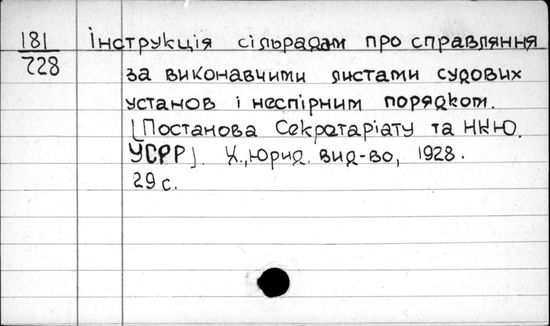 181
728
Інструкція сільрадам про справляння
за виконавчими листами судових
установ і неспірним порядком.
[Постанова Секретаріату та НКЮ.
УСРР]. Х., Юрид. вид-во, 1928.
29 с.